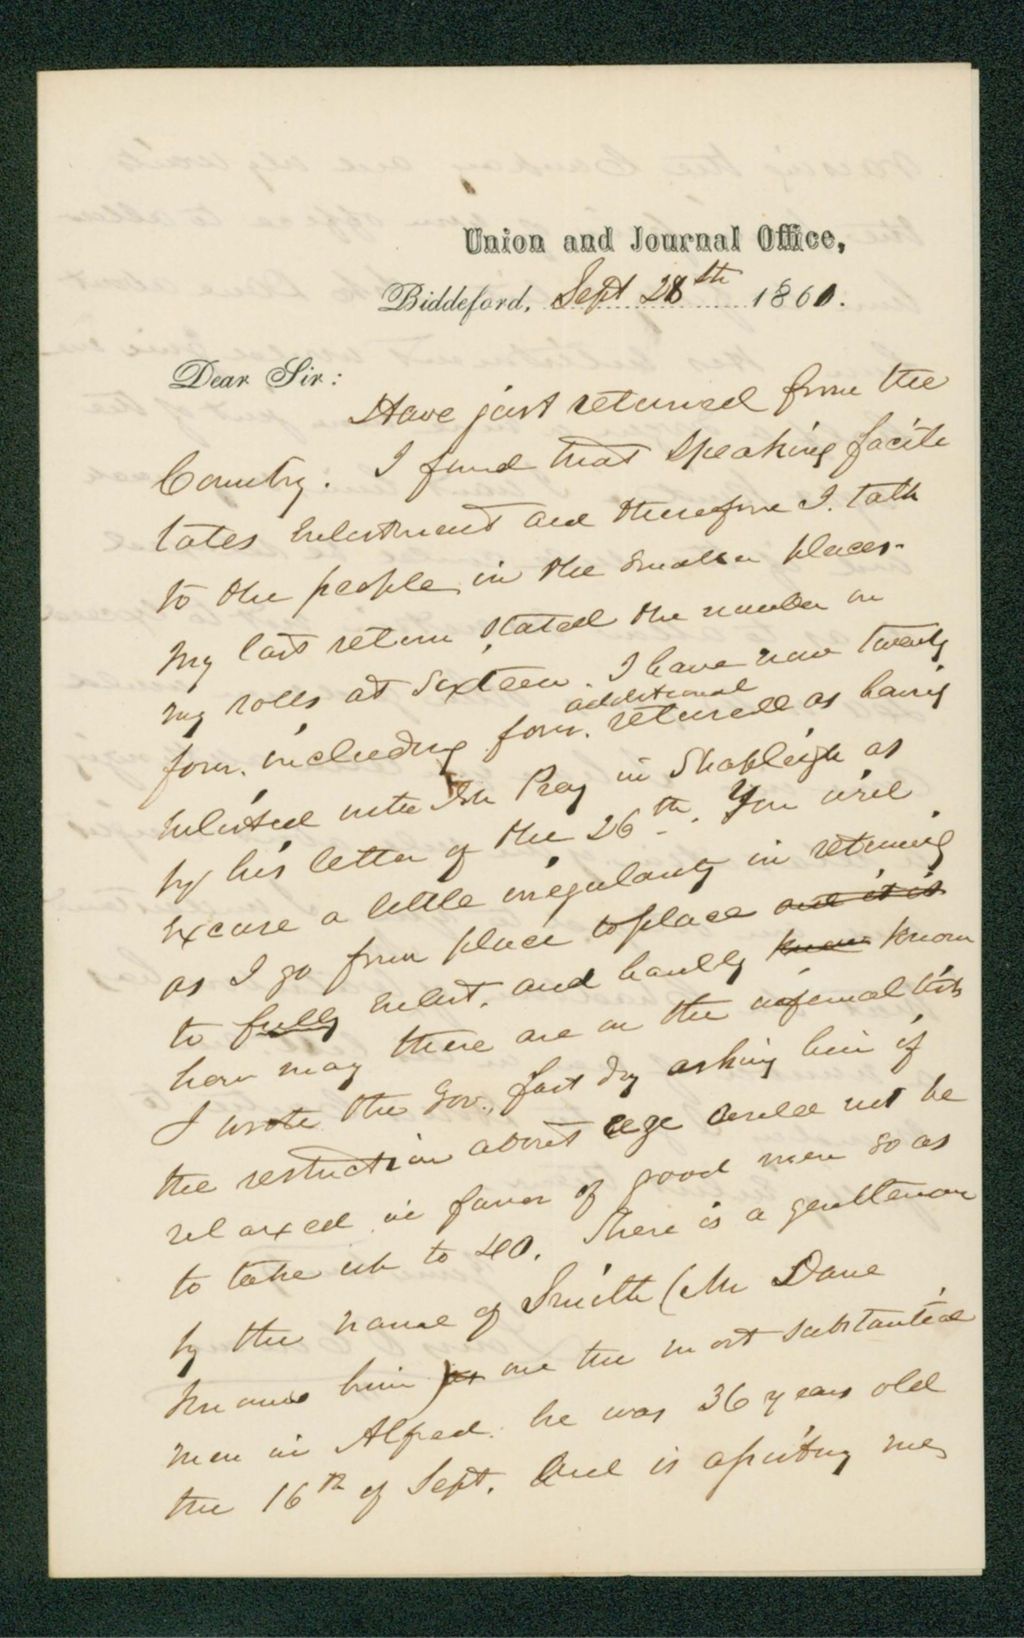 Union and Journal Office,
Biddeford, Sept 28th 1861.
Dear Sir:
Have just returned from the
Country. I find that speaking facili
tates enlistment and therefore I talk
to the people in the smaller places.
My last return stated the number on
my rolls at sixteen. I have now twenty
four. including four additional returned as having
enlisted with Ivh Pray in Shapleigh as
by his letter of the 26th. You will
excuse a little irregularity in returning
as I go from place to place and it is
to fully enlist, and hardly know know
how may there are on the informal lists
I wrote the Gov. fast dy asking him if
the restriction about age could not be
relaxed in favor of good men so as
to take up to 40. There is a gentleman
by the name of Smith (Mr Dane
knows him) as one the most substantial
men in Alfred. he was 36 years old
the 16th of Sept. And is assisting me